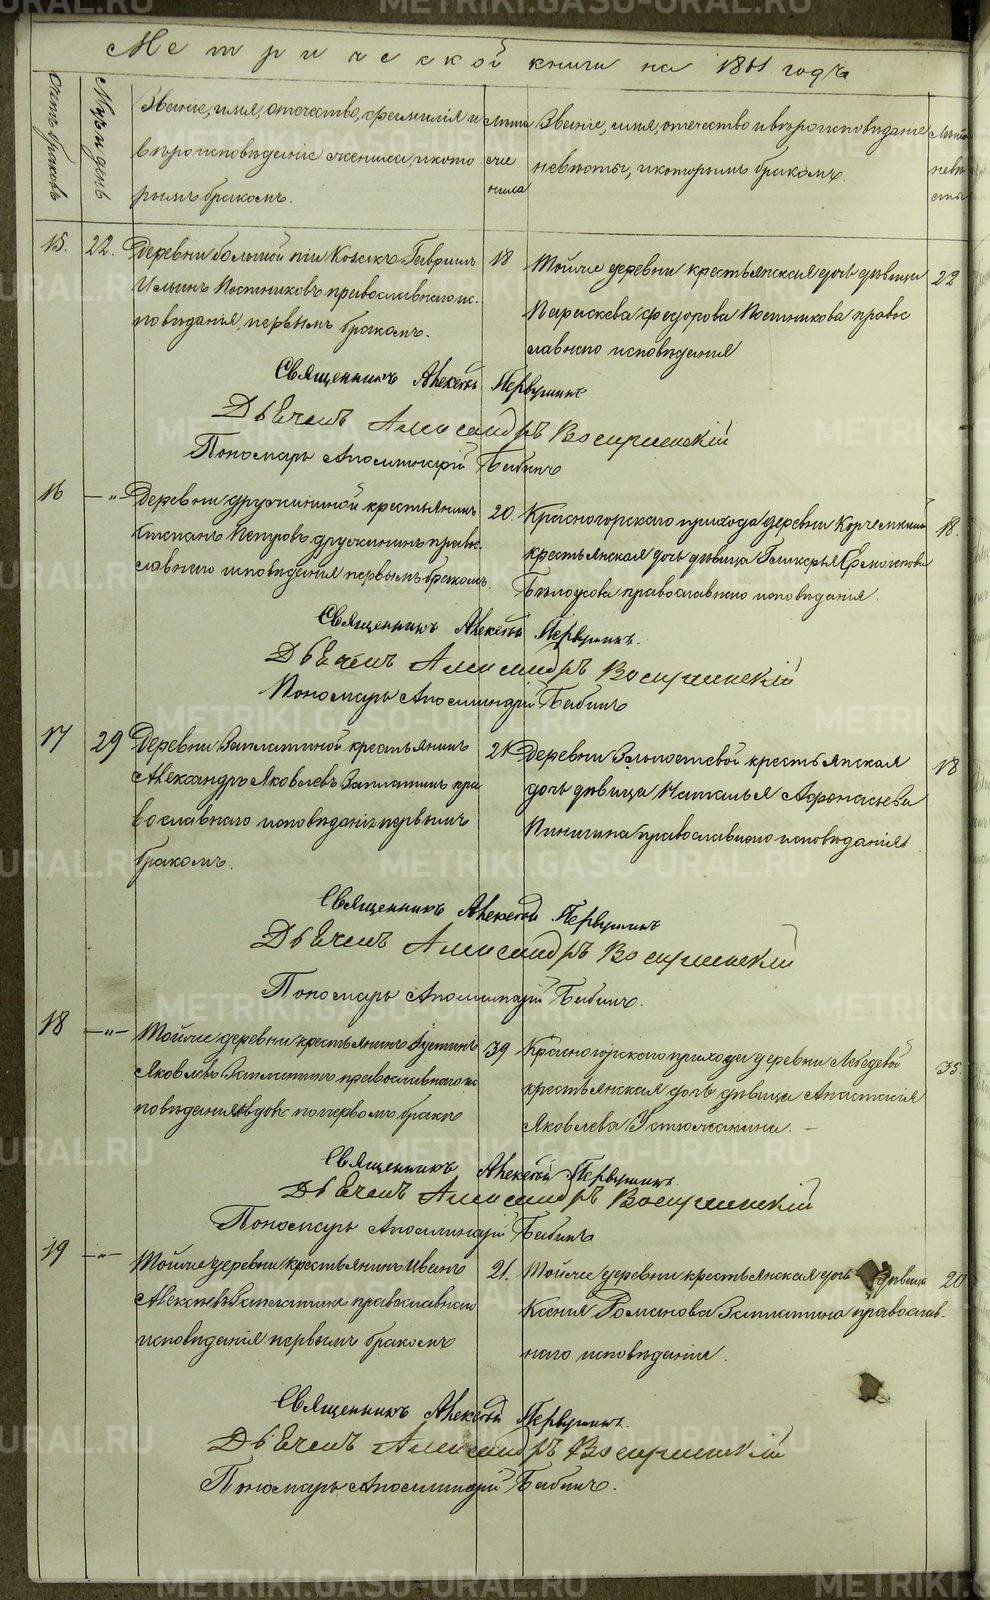 Метрической книги на 1861 годъ
Счетъ браковъ
Мѣсяцъ и день
Званіе, имя, отечество, фамилія и
вѣроисповѣданіе жениха, и кото
рымъ бракомъ.
Лѣта
же
ниха
Званіе, имя, отечество и вѣроисповѣданіе
невѣсты, и которымъ бракомъ.
Лѣта
невѣ
сты
15.
22.
Деревни большой Гавриилъ
Ильинъ Постниковъ православнаго ис-
повѣданія, первымъ бракомъ.
18
Тойже деревни крестьянская дочь дѣвица
Параскева Федорова Постникова правос
лавнаго исповѣданія
22
Священникъ Алексѣй Первушинъ
Дьячекъ Александръ Воскресенскій
Пономарь Аполлинарій Бабинъ
16
—"—
Деревни дружининой крестьянинъ
Степанъ Петровъ дружининъ правос
лавнаго исповѣданія первымъ бракомъ.
20.
Красногорскаго прихода деревни
крестьянская дочь дѣвица Гликерья
Бѣлоусова православнаго исповѣданія.
18.
Священникъ Алексѣй Первушинъ.
Дьячекъ Александръ Воскресенскій
Пономарь Аполлинарій Бабинъ
17
29
Деревни Заплатиной крестьянинъ
Александръ Яковлевъ Заплатинъ пра
вославнаго исповѣданія первымъ
бракомъ.
21
Деревни крестьянская
дочь дѣвица Наталья Афонасьева
Пинигина православнаго исповѣданія
18
Священникъ Алексѣй Первушинъ
Дьячекъ Александръ Воскресенскій
Пономарь Аполлинарій Бабинъ.
18
—"—
Тойже деревни крестьянинъ Устинъ
Яковлевъ Заплатинъ православнаго ис
повѣданія вдовъ попервомъ бракѣ
39
Красногорскаго прихода деревни Лебедевой
крестьянская дочь дѣвица Анастасія
Яковлева Устюжанина. —
35
Священникъ Алексѣй Первушинъ.
Дьячекъ Александръ Воскресенскій
Пономарь Аполлинарій Бабинъ
19
—"—
Тойже деревни крестьянинъ Иванъ
Алексѣевъ Заплатинъ православнаго
исповѣданія первымъ бракомъ
21.
Тойже деревни крестьянская дочь дѣвица
Ксенія Романова Заплатина православ-
наго исповѣданія.
20
Священникъ Алексѣй Первушинъ.
Дьячекъ Александръ Воскресенскій
Пономарь Аполлинарій Бабинъ.
METRIKI.GASO-URAL.RU